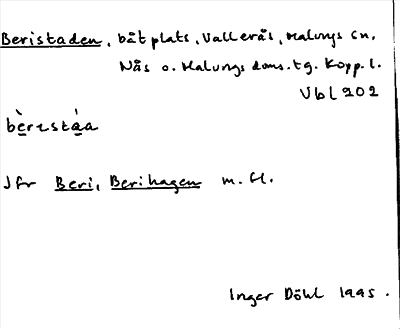 Beristaden, båtplats, Vallerås, Malungs sn,
Nås o. Malungs doms.tg. Kopp. l.
Vbl 202
bèrɪstàa
Jfr Beri, Berihagen m.fl.
Inger Döhl 1995.